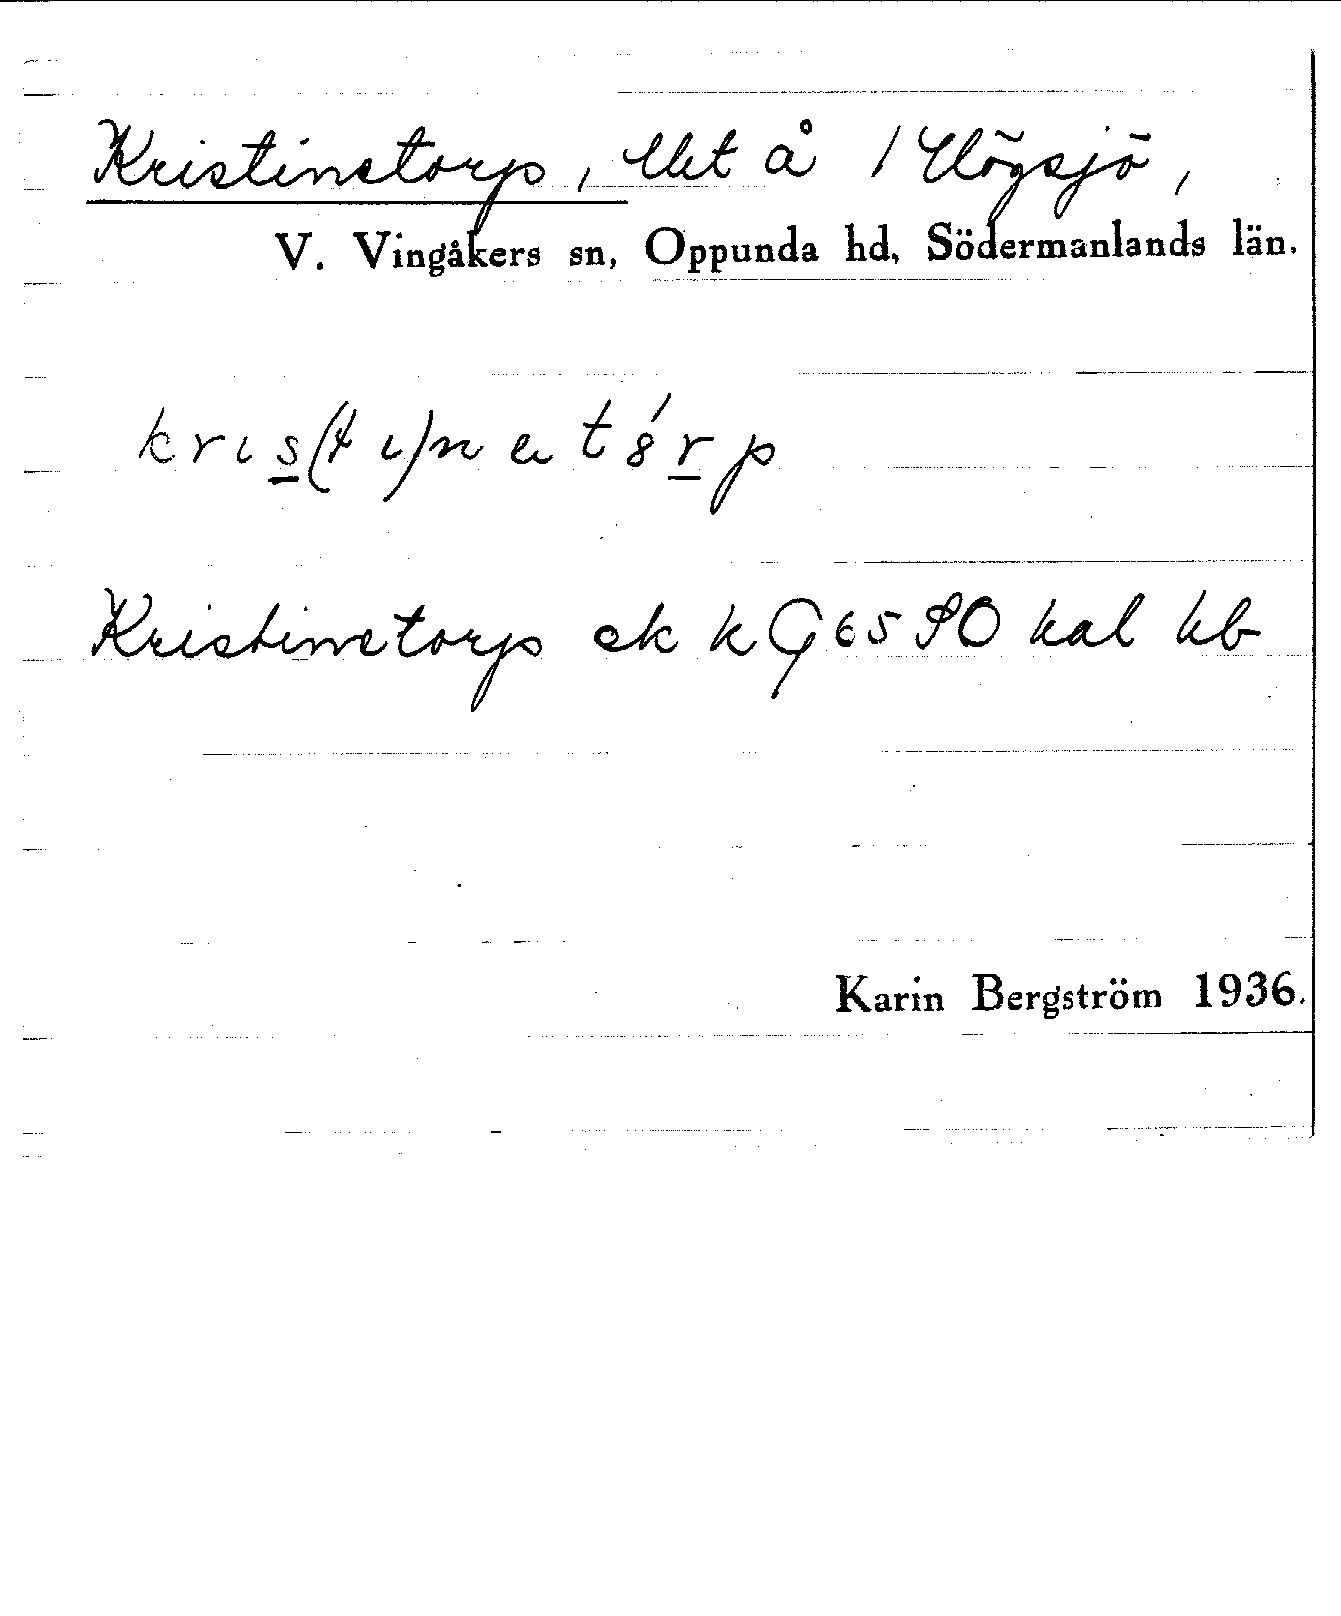 Kristinetorp, lht å 1 Högsjö,
V. Vingåkers sn, Oppunda hd, Södermanlands län.
Kristinetorp ek k G 65 90 hal hb
Karin Bergström 1936.